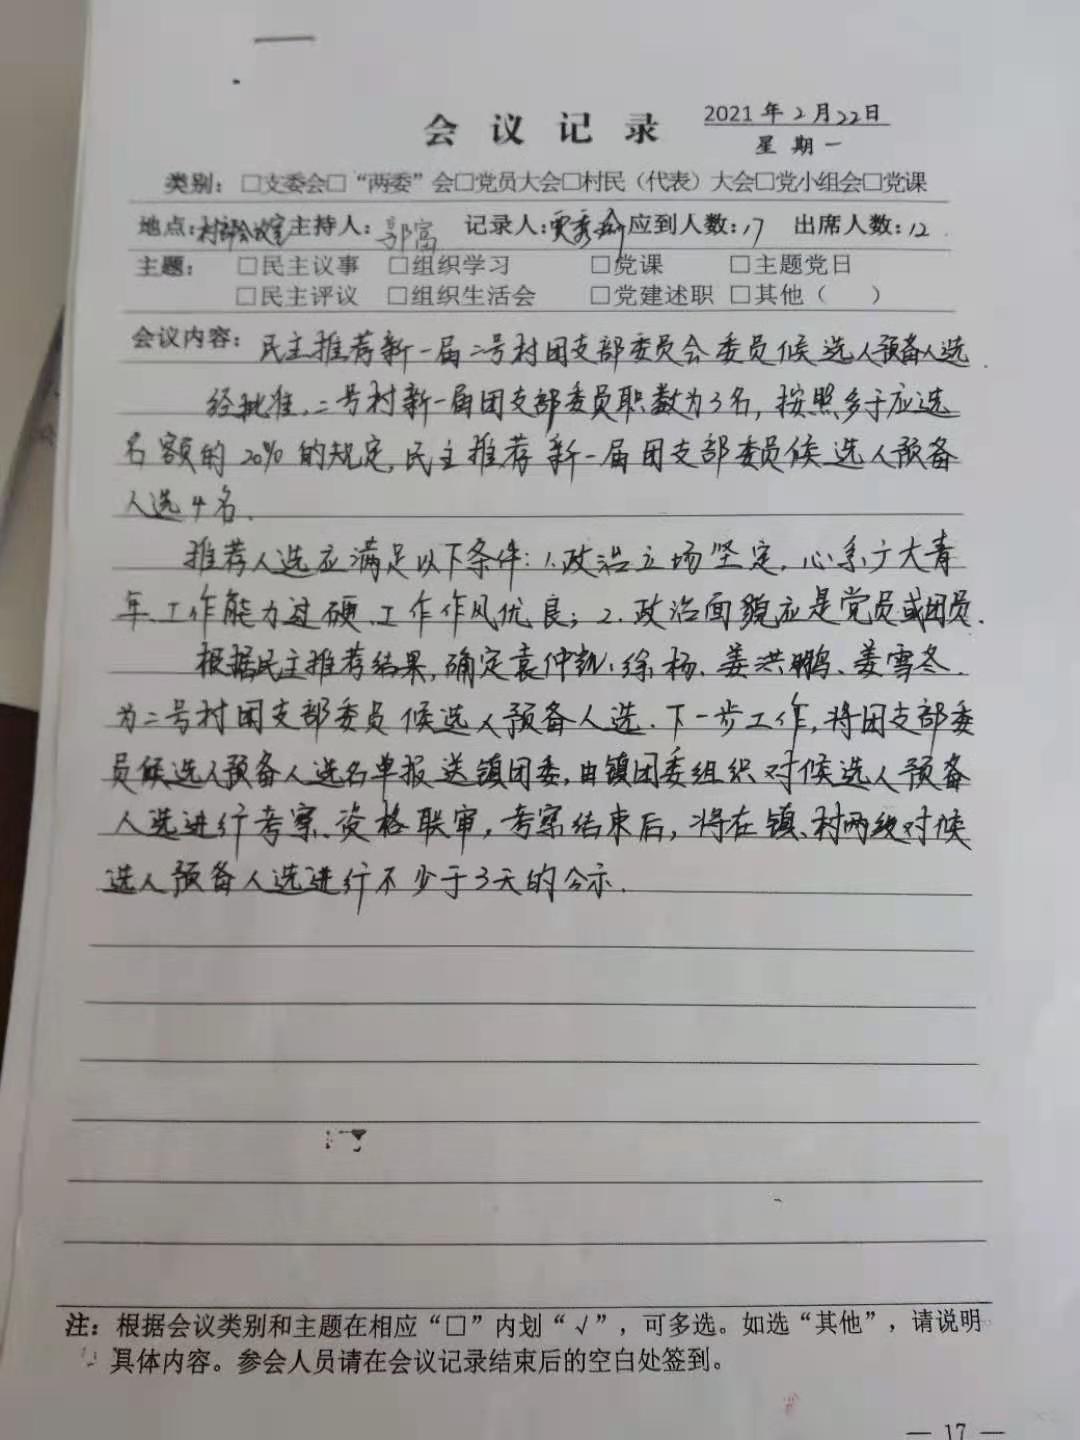 会议记录 2021年2月22日
星期一
类别：□支委会□“两委”会□党员大会□村民（代表）大会□党小组会□党课
地点：村部会议室 主持人：郭富 记录人：贾秀 应到人数：17 出席人数：12
主题： □民主议事 □组织学习 □党课 □主题党日
□民主评议 □组织生活会 □党建述职 □其他（ ）
会议内容：民主推荐新一届二号村团支部委员会委员候选人预备人选.
经批准,二号村新一届团支部委员职数为3名,按照多于应选
名额的20%的规定,民主推荐新一届团支部委员候选人预备
人选4名.
推荐人选应满足以下条件:1.政治立场坚定,心系广大青
年、工作能力过硬、工作作风优良;2.政治面貌应是党员或团员.
根据民主推荐结果,确定袁仲凯、徐杨、姜洪鹏、姜雪冬.
为二号村团支部委员候选人预备人选.下一步工作,将团支部委
员候选人预备人选名单报送镇团委,由镇团委组织对候选人预备
人选进行考察、资格联审,考察结束后,将在镇、村两级对候
选人预备人选进行不少于3天的公示.
注：根据会议类别和主题在相应“□”内划“√”，可多选。如选“其他”，请说明
具体内容。参会人员请在会议记录结束后的空白处签到。
— 17 —